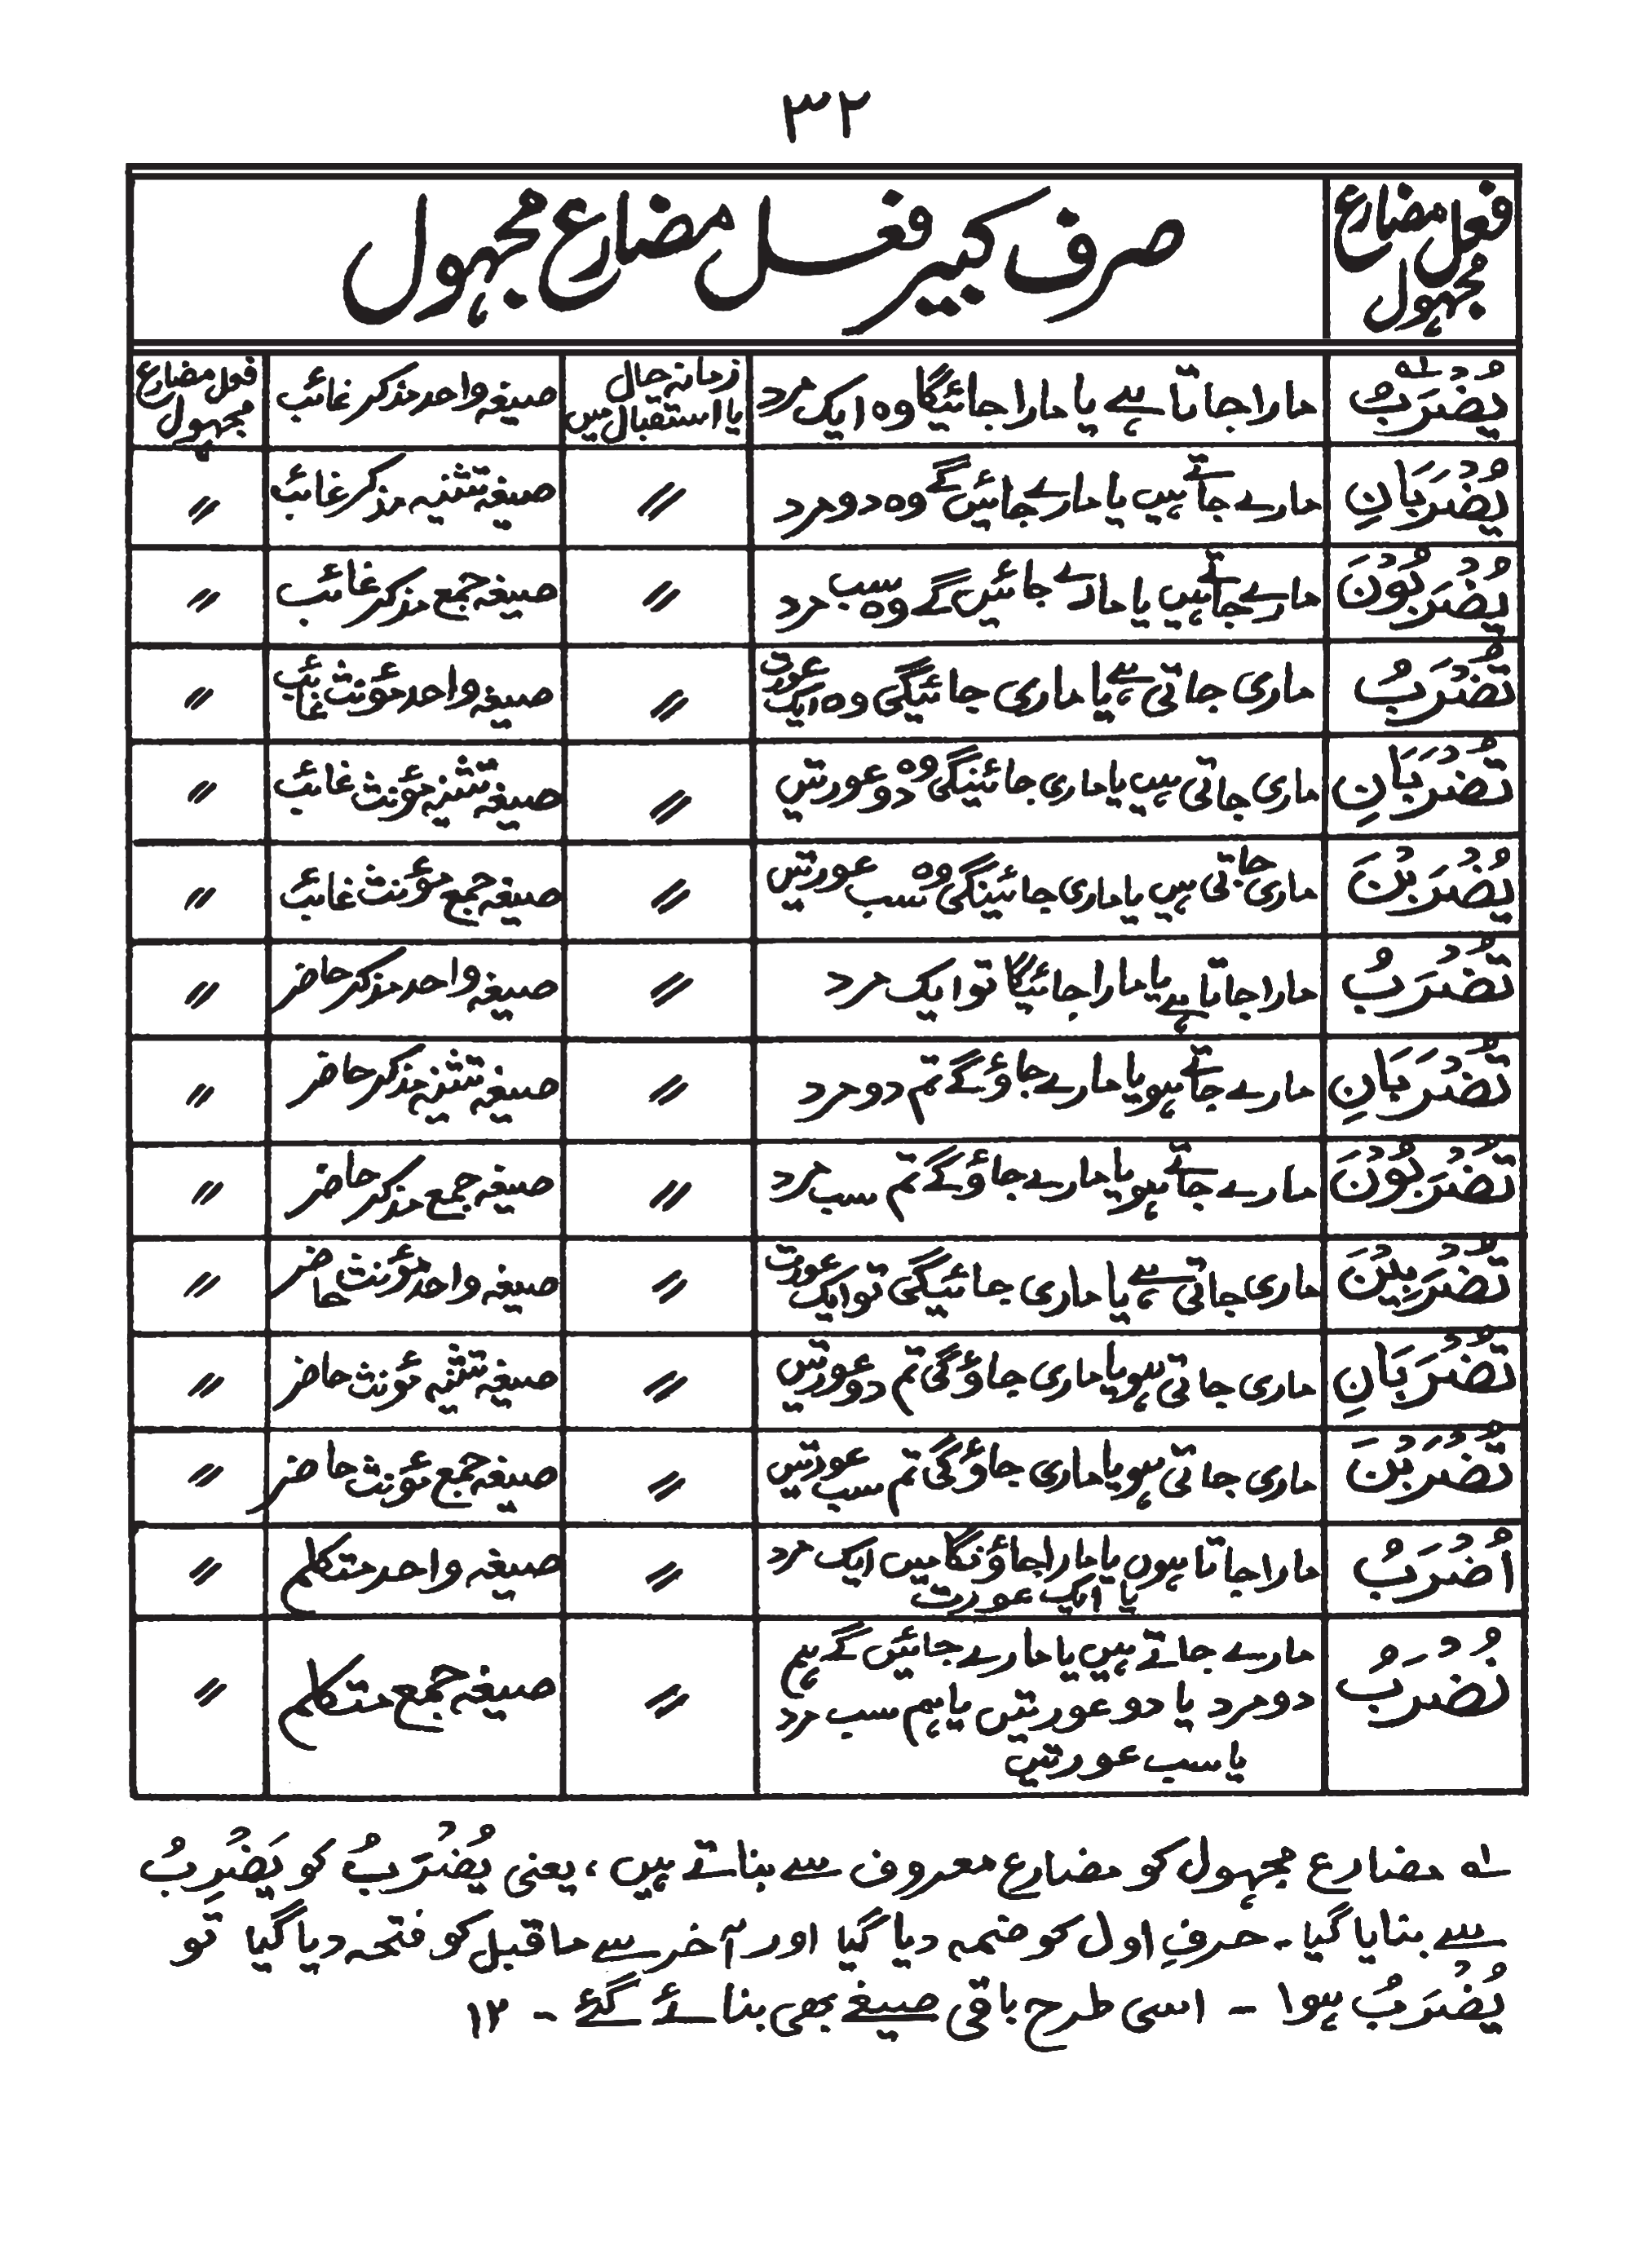 ۳۲
فعل مضارع مجہول صرف کبیر فعل مضارع مجہول
یُضْرَبُ ؎۱ مارا جاتا ہے یا مارا جائیگا وہ ایک مرد زمانہ حال یا استقبال میں صیغہ واحد مذکر غائب فعل مضارع مجہول
یُضْرَبَانِ مارے جاتے ہیں یا مارے جائیں گے وہ دو مرد 〃 صیغہ تثنیہ مذکر غائب 〃
یُضْرَبُوْنَ مارے جاتے ہیں یا مارے جائیں گے وہ سب مرد 〃 صیغہ جمع مذکر غائب 〃
تُضْرَبُ ماری جاتی ہے یا ماری جائیگی وہ ایک عورت 〃 صیغہ واحد مؤنث غائب 〃
تُضْرَبَانِ ماری جاتی ہیں یا ماری جائینگی وہ دو عورتیں 〃 صیغہ تثنیہ مؤنث غائب 〃
یُضْرَبْنَ ماری جاتی ہیں یا ماری جائینگی وہ سب عورتیں 〃 صیغہ جمع مؤنث غائب 〃
تُضْرَبُ مارا جاتا ہے یا مارا جائیگا تو ایک مرد 〃 صیغہ واحد مذکر حاضر 〃
تُضْرَبَانِ مارے جاتے ہو یا مارے جاؤ گے تم دو مرد 〃 صیغہ تثنیہ مذکر حاضر 〃
تُضْرَبُوْنَ مارے جاتے ہو یا مارے جاؤ گے تم سب مرد 〃 صیغہ جمع مذکر حاضر 〃
تُضْرَبِیْنَ ماری جاتی ہے یا ماری جائیگی تو ایک عورت 〃 صیغہ واحد مؤنث حاضر 〃
تُضْرَبَانِ ماری جاتی ہو یا ماری جاؤ گی تم دو عورتیں 〃 صیغہ تثنیہ مؤنث حاضر 〃
تُضْرَبْنَ ماری جاتی ہو یا ماری جاؤ گی تم سب عورتیں 〃 صیغہ جمع مؤنث حاضر 〃
اُضْرَبُ مارا جاتا ہوں یا مارا جاؤنگا میں ایک مرد یا ایک عورت 〃 صیغہ واحد متکلم 〃
نُضْرَبُ مارے جاتے ہیں یا مارے جائیں گے ہم
دو مرد یا دو عورتیں یا ہم سب مرد
یا سب عورتیں 〃 صیغہ جمع متکلم 〃
؎۱ مضارع مجہول کو مضارع معروف سے بناتے ہیں، یعنی یُضْرَبُ کو یَضْرِبُ
سے بنایا گیا۔ حرفِ اول کو ضمہ دیا گیا اور آخر سے ماقبل کو فتحہ دیا گیا تو
یُضْرَبُ ہوا - اسی طرح باقی صیغے بھی بنائے گئے - ۱۲